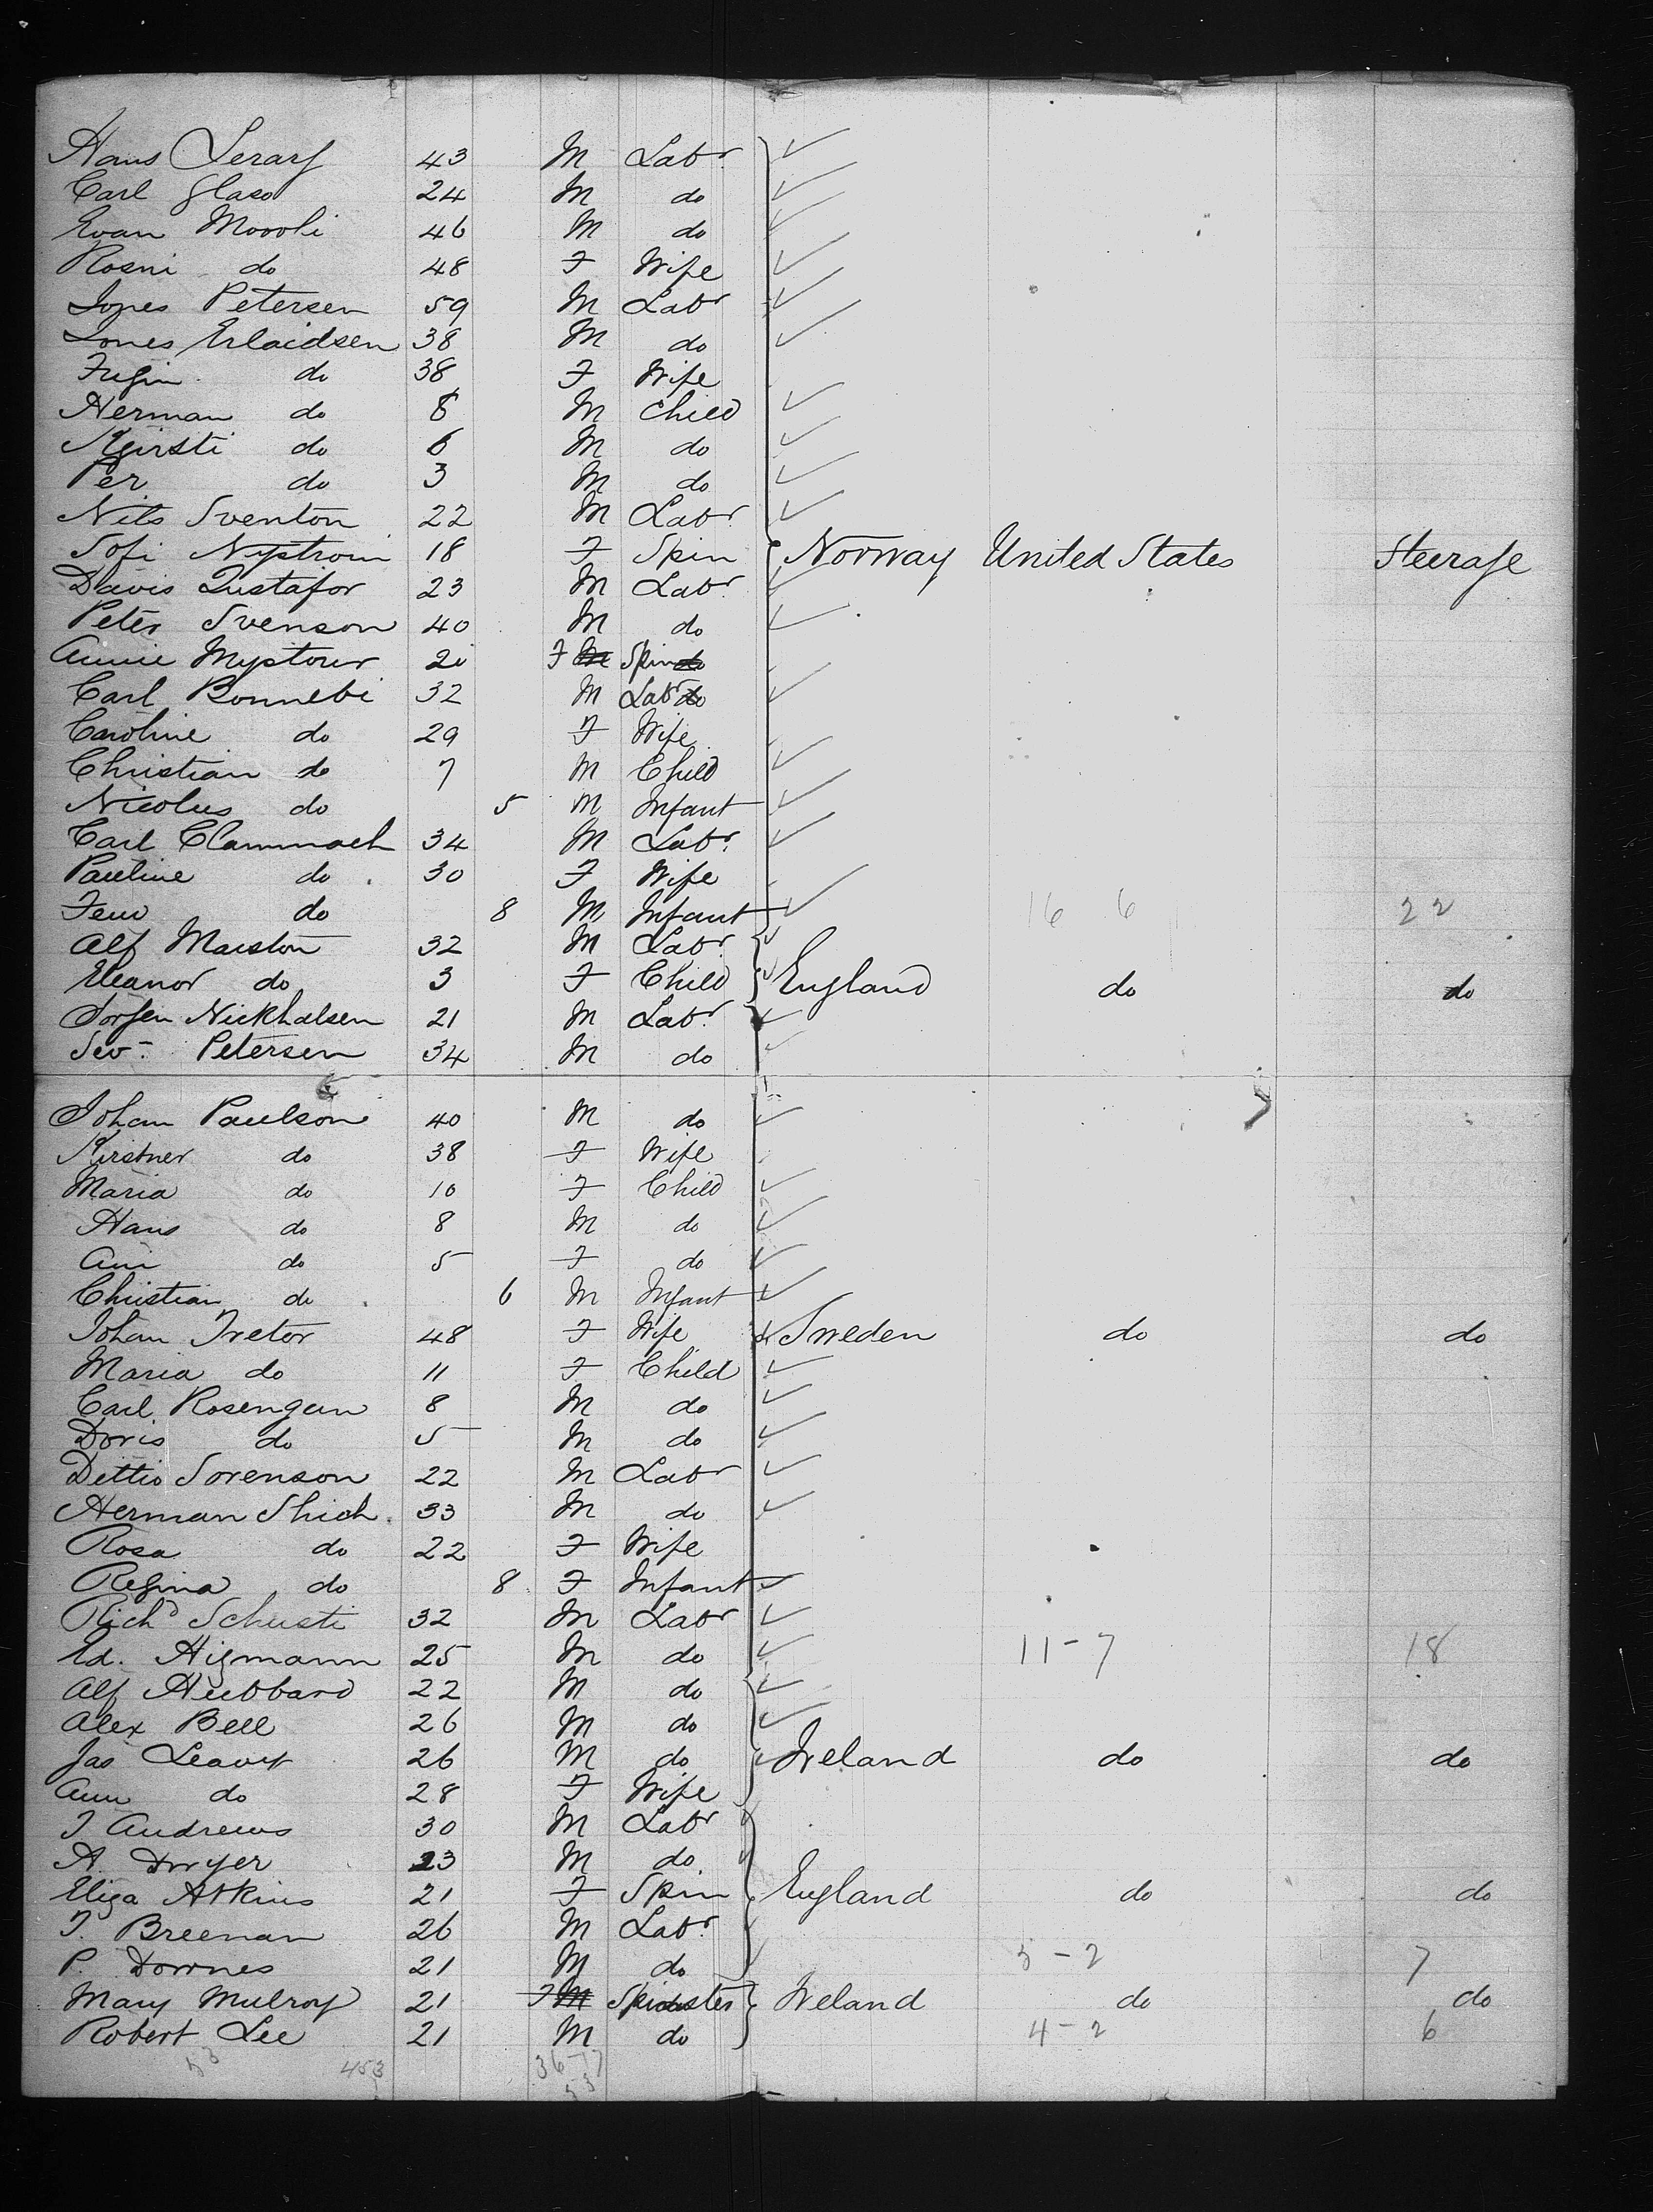 Hans Serarf 43 M Labr
Carl Glaso 24 M do
Evan Moroli 46 M do
Rosni do 48 F Wife
Jones Petersen 59 M Labr
Jones Erlaidsen 38 M do
do 38 F Wife
Herman do 8 M Child
Kjirsti do 6 M do
Per do 3 M do
Nils Sventon 22 M Labr
Sofi Nystrom 18 F Spin Norway United States Steerage
Davis Gustafor 23 M Labr
Peter Svenson 40 M do
Annie Mystour 20 F Spin do
Carl Bonnebi 32 M Labr do
Caroline do 29 F Wife
Christian do 7 M Child
Nicolus do 5 M Infant
Carl Clammach 34 M Labr
Pauline do 30 F Wife
do 8 M Infant 16 6 22
Alf Marston 32 M Labr
Eleanor do 3 F Child England do do
Jorgen Nickhalsen 21 M Labr
Sev- Petersen 34 M do
Johan Paulson 40 M do
Kirstner do 38 F Wife
Maria do 10 F Child
Hans do 8 M do
Ann do 5 F do
Christian do 6 M Infant
Johan Tretor 48 F Wife Sweden do do
Maria do 11 F Child
Carl Rosengun 8 M do
Doris do 5 M do
Dittio Sorenson 22 M Labr
Herman Shich 33 M do
Rosa do 22 F Wife
Regina do 8 F Infant
Richd Schusti 32 M Labr
Ed. Higmann 25 M do 11-7 18
Alf Hubbard 22 M do
Alex Bell 26 M do
Jas Leavy 26 M do Ireland do do
Ann do 28 F Wife
J Andrews 30 M Labr
A. Dwyer 23 M do
Eliza Atkins 21 F Spin England do do
T. Breenan 26 M Labr
P. Downes 21 M do 5-2 7
Mary Mulroy 21 F M Spinster Ireland do do
Robert Lee 21 M do 4-2 6
53 453 36-17
53